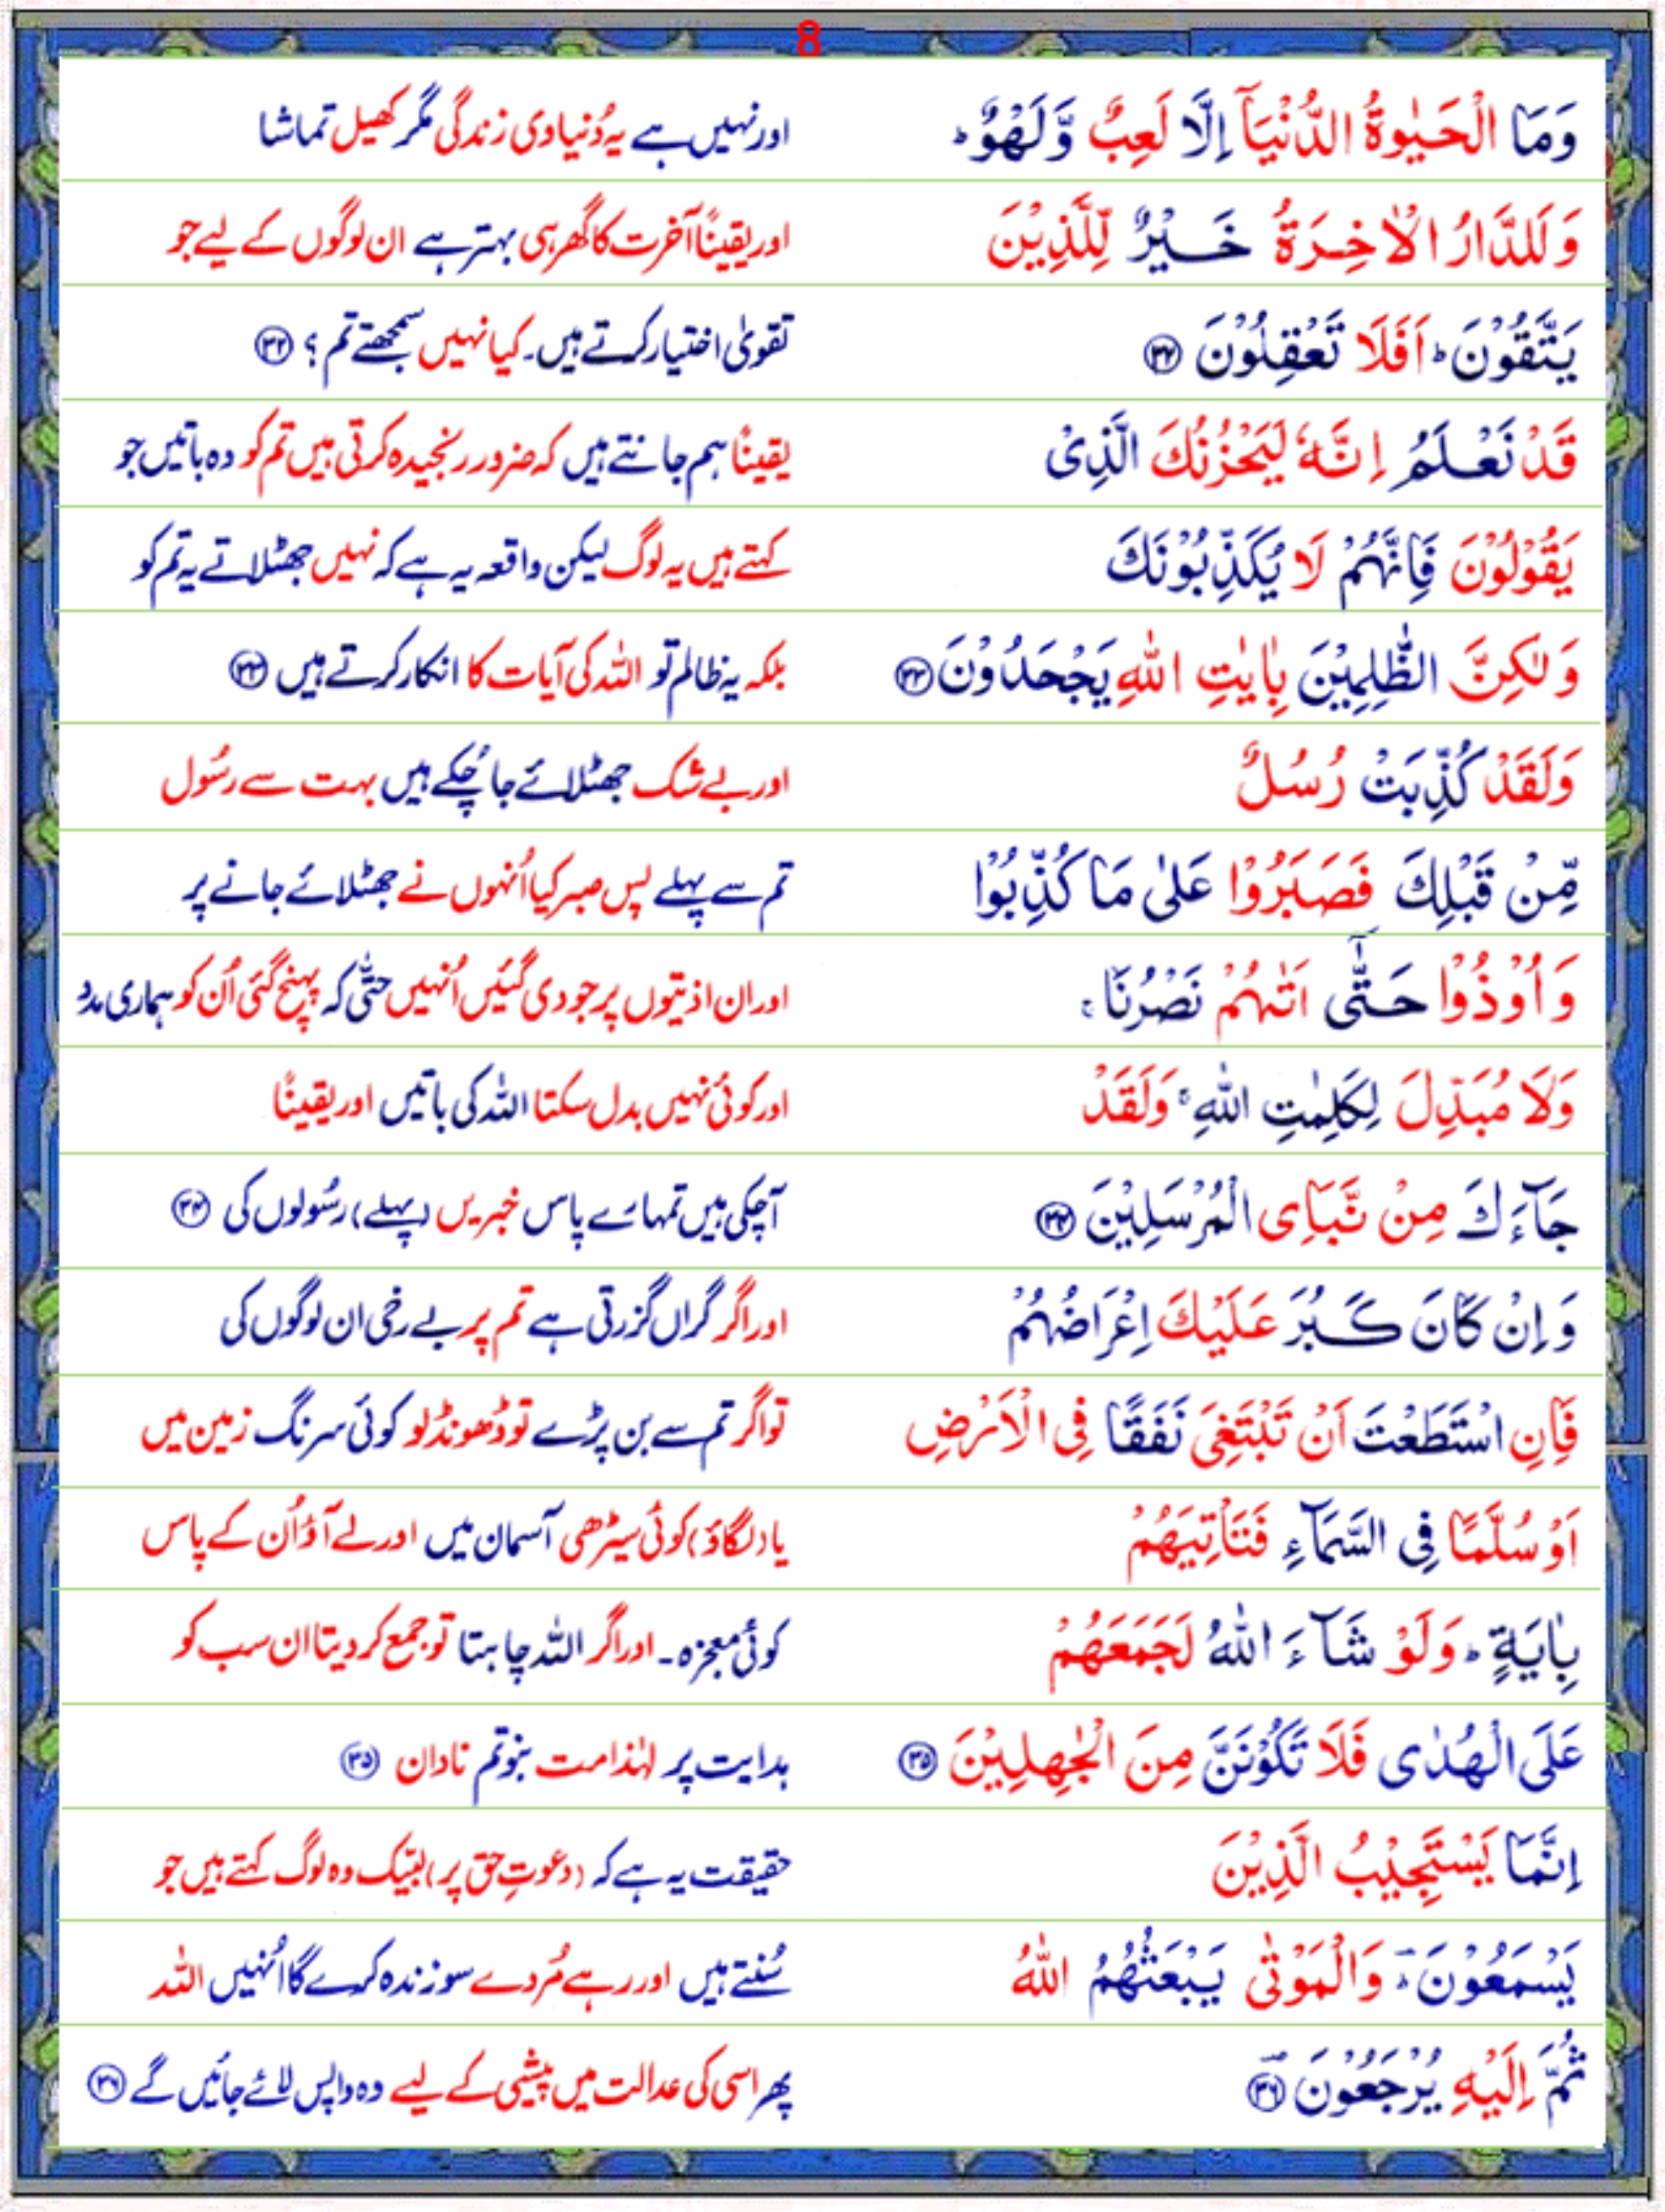 8
وَمَا الْحَيٰوةُ الدُّنْيَآ اِلَّا لَعِبٌ وَّلَهْوٌ ؕ اور نہیں ہے یہ دُنیاوی زندگی مگر کھیل تماشا
وَلَلدَّارُ الْاٰخِرَةُ خَيْرٌ لِّلَّذِيْنَ اور یقیناً آخرت کا گھر ہی بہتر ہے ان لوگوں کے لیے جو
يَتَّقُوْنَ ؕ اَفَلَا تَعْقِلُوْنَ ﴿۳۲﴾ تقویٰ اختیار کرتے ہیں۔ کیا نہیں سمجھتے تم؟ ﴿۳۲﴾
قَدْ نَعْلَمُ اِنَّهٗ لَيَحْزُنُكَ الَّذِىْ یقیناً ہم جانتے ہیں کہ ضرور رنجیدہ کرتی ہیں تم کو وہ باتیں جو
يَقُوْلُوْنَ فَاِنَّهُمْ لَا يُكَذِّبُوْنَكَ کہتے ہیں یہ لوگ لیکن واقعہ یہ ہے کہ نہیں جھٹلاتے یہ تم کو
وَلٰكِنَّ الظّٰلِمِيْنَ بِاٰيٰتِ اللّٰهِ يَجْحَدُوْنَ ﴿۳۳﴾ بلکہ یہ ظالم تو اللہ کی آیات کا انکار کرتے ہیں ﴿۳۳﴾
وَلَقَدْ كُذِّبَتْ رُسُلٌ اور بے شک جھٹلائے جا چُکے ہیں بہت سے رسُول
مِّنْ قَبْلِكَ فَصَبَرُوْا عَلٰى مَا كُذِّبُوْا تم سے پہلے پس صبر کیا اُنہوں نے جھٹلائے جانے پر
وَاُوْذُوْا حَتّٰٓى اَتٰٮهُمْ نَصْرُنَا ۚ اور ان اذیتوں پر جو دی گئیں اُنہیں حتّٰی کہ پہنچ گئی اُن کو ہماری مدد
وَلَا مُبَدِّلَ لِكَلِمٰتِ اللّٰهِ ۚ وَلَقَدْ اور کوئی نہیں بدل سکتا اللہ کی باتیں اور یقیناً
جَآءَكَ مِنْ نَّبَاِى الْمُرْسَلِيْنَ ﴿۳۴﴾ آچکی ہیں تمہارے پاس خبریں (پہلے) رسُولوں کی ﴿۳۴﴾
وَاِنْ كَانَ كَبُرَ عَلَيْكَ اِعْرَاضُهُمْ اور اگر گراں گزرتی ہے تم پر بے رخی ان لوگوں کی
فَاِنِ اسْتَطَعْتَ اَنْ تَبْتَغِىَ نَفَقًا فِى الْاَرْضِ تو اگر تم سے بن پڑے تو ڈھونڈ لو کوئی سرنگ زمین میں
اَوْ سُلَّمًا فِى السَّمَآءِ فَتَاْتِيَهُمْ یا (لگاؤ) کوئی سیڑھی آسمان میں اور لے آؤ اُن کے پاس
بِاٰيَةٍ ؕ وَلَوْ شَآءَ اللّٰهُ لَجَمَعَهُمْ کوئی معجزہ۔ اور اگر اللہ چاہتا تو جمع کر دیتا ان سب کو
عَلَى الْهُدٰى فَلَا تَكُوْنَنَّ مِنَ الْجٰهِلِيْنَ ﴿۳۵﴾ ہدایت پر لہٰذا مت بنو تم نادان ﴿۳۵﴾
اِنَّمَا يَسْتَجِيْبُ الَّذِيْنَ حقیقت یہ ہے کہ (دعوتِ حق پر) لبیّک وہ لوگ کہتے ہیں جو
يَسْمَعُوْنَ ؕ وَالْمَوْتٰى يَبْعَثُهُمُ اللّٰهُ سُنتے ہیں اور رہے مُردے سو زندہ کرے گا اُنہیں اللہ
ثُمَّ اِلَيْهِ يُرْجَعُوْنَ ﴿۳۶﴾ پھر اسی کی عدالت میں پیشی کے لیے وہ واپس لائے جائیں گے ﴿۳۶﴾